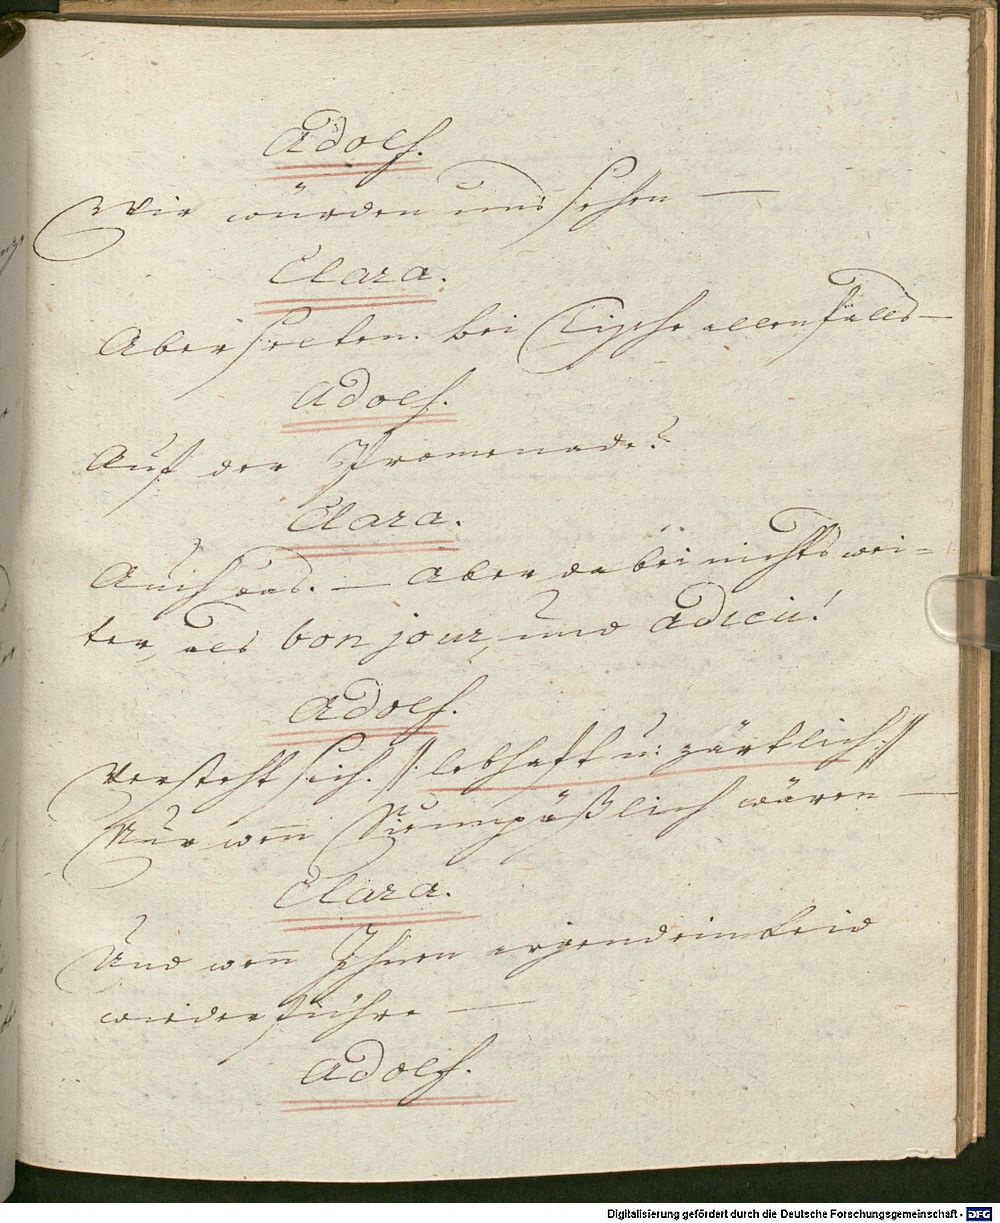 Adolf.
Wir würden uns sehen —
Clara.
Aber selten. bei Tische allenfalls —
Adolf.
Auf der Promenade?
Clara.
Auch das. — Aber dabei nichts wei=
ter, als bon jour, und adieu!
Adolf.
Versteht sich. /: lebhaft u: zärtlich :/
Nur wenn Sie unpäßlich wären —
Clara.
Und wenn Ihnen irgend ein Leid
wiederführe —
Adolf.
Digitalisierung gefördert durch die Deutsche Forschungsgemeinschaft - DFG